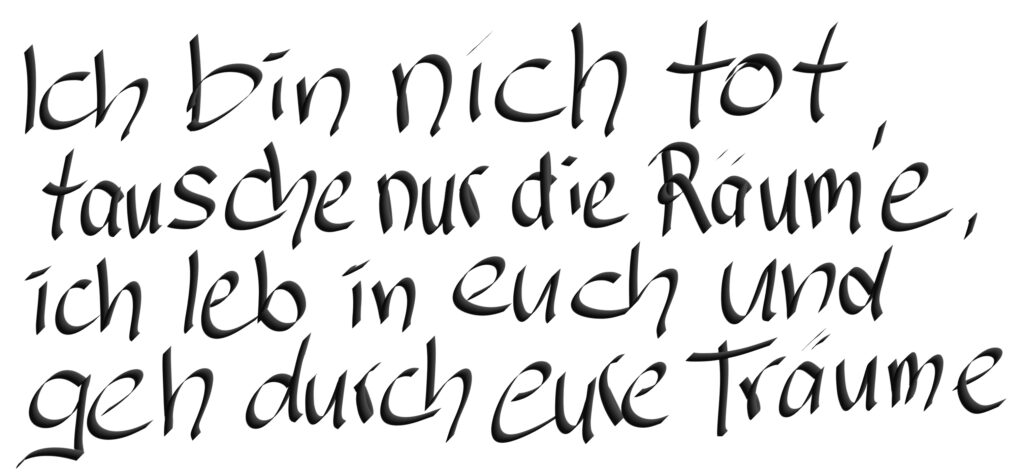 Ich bin nich tot
tausche nur die Räume,
ich leb in euch und
geh durch eure Träume